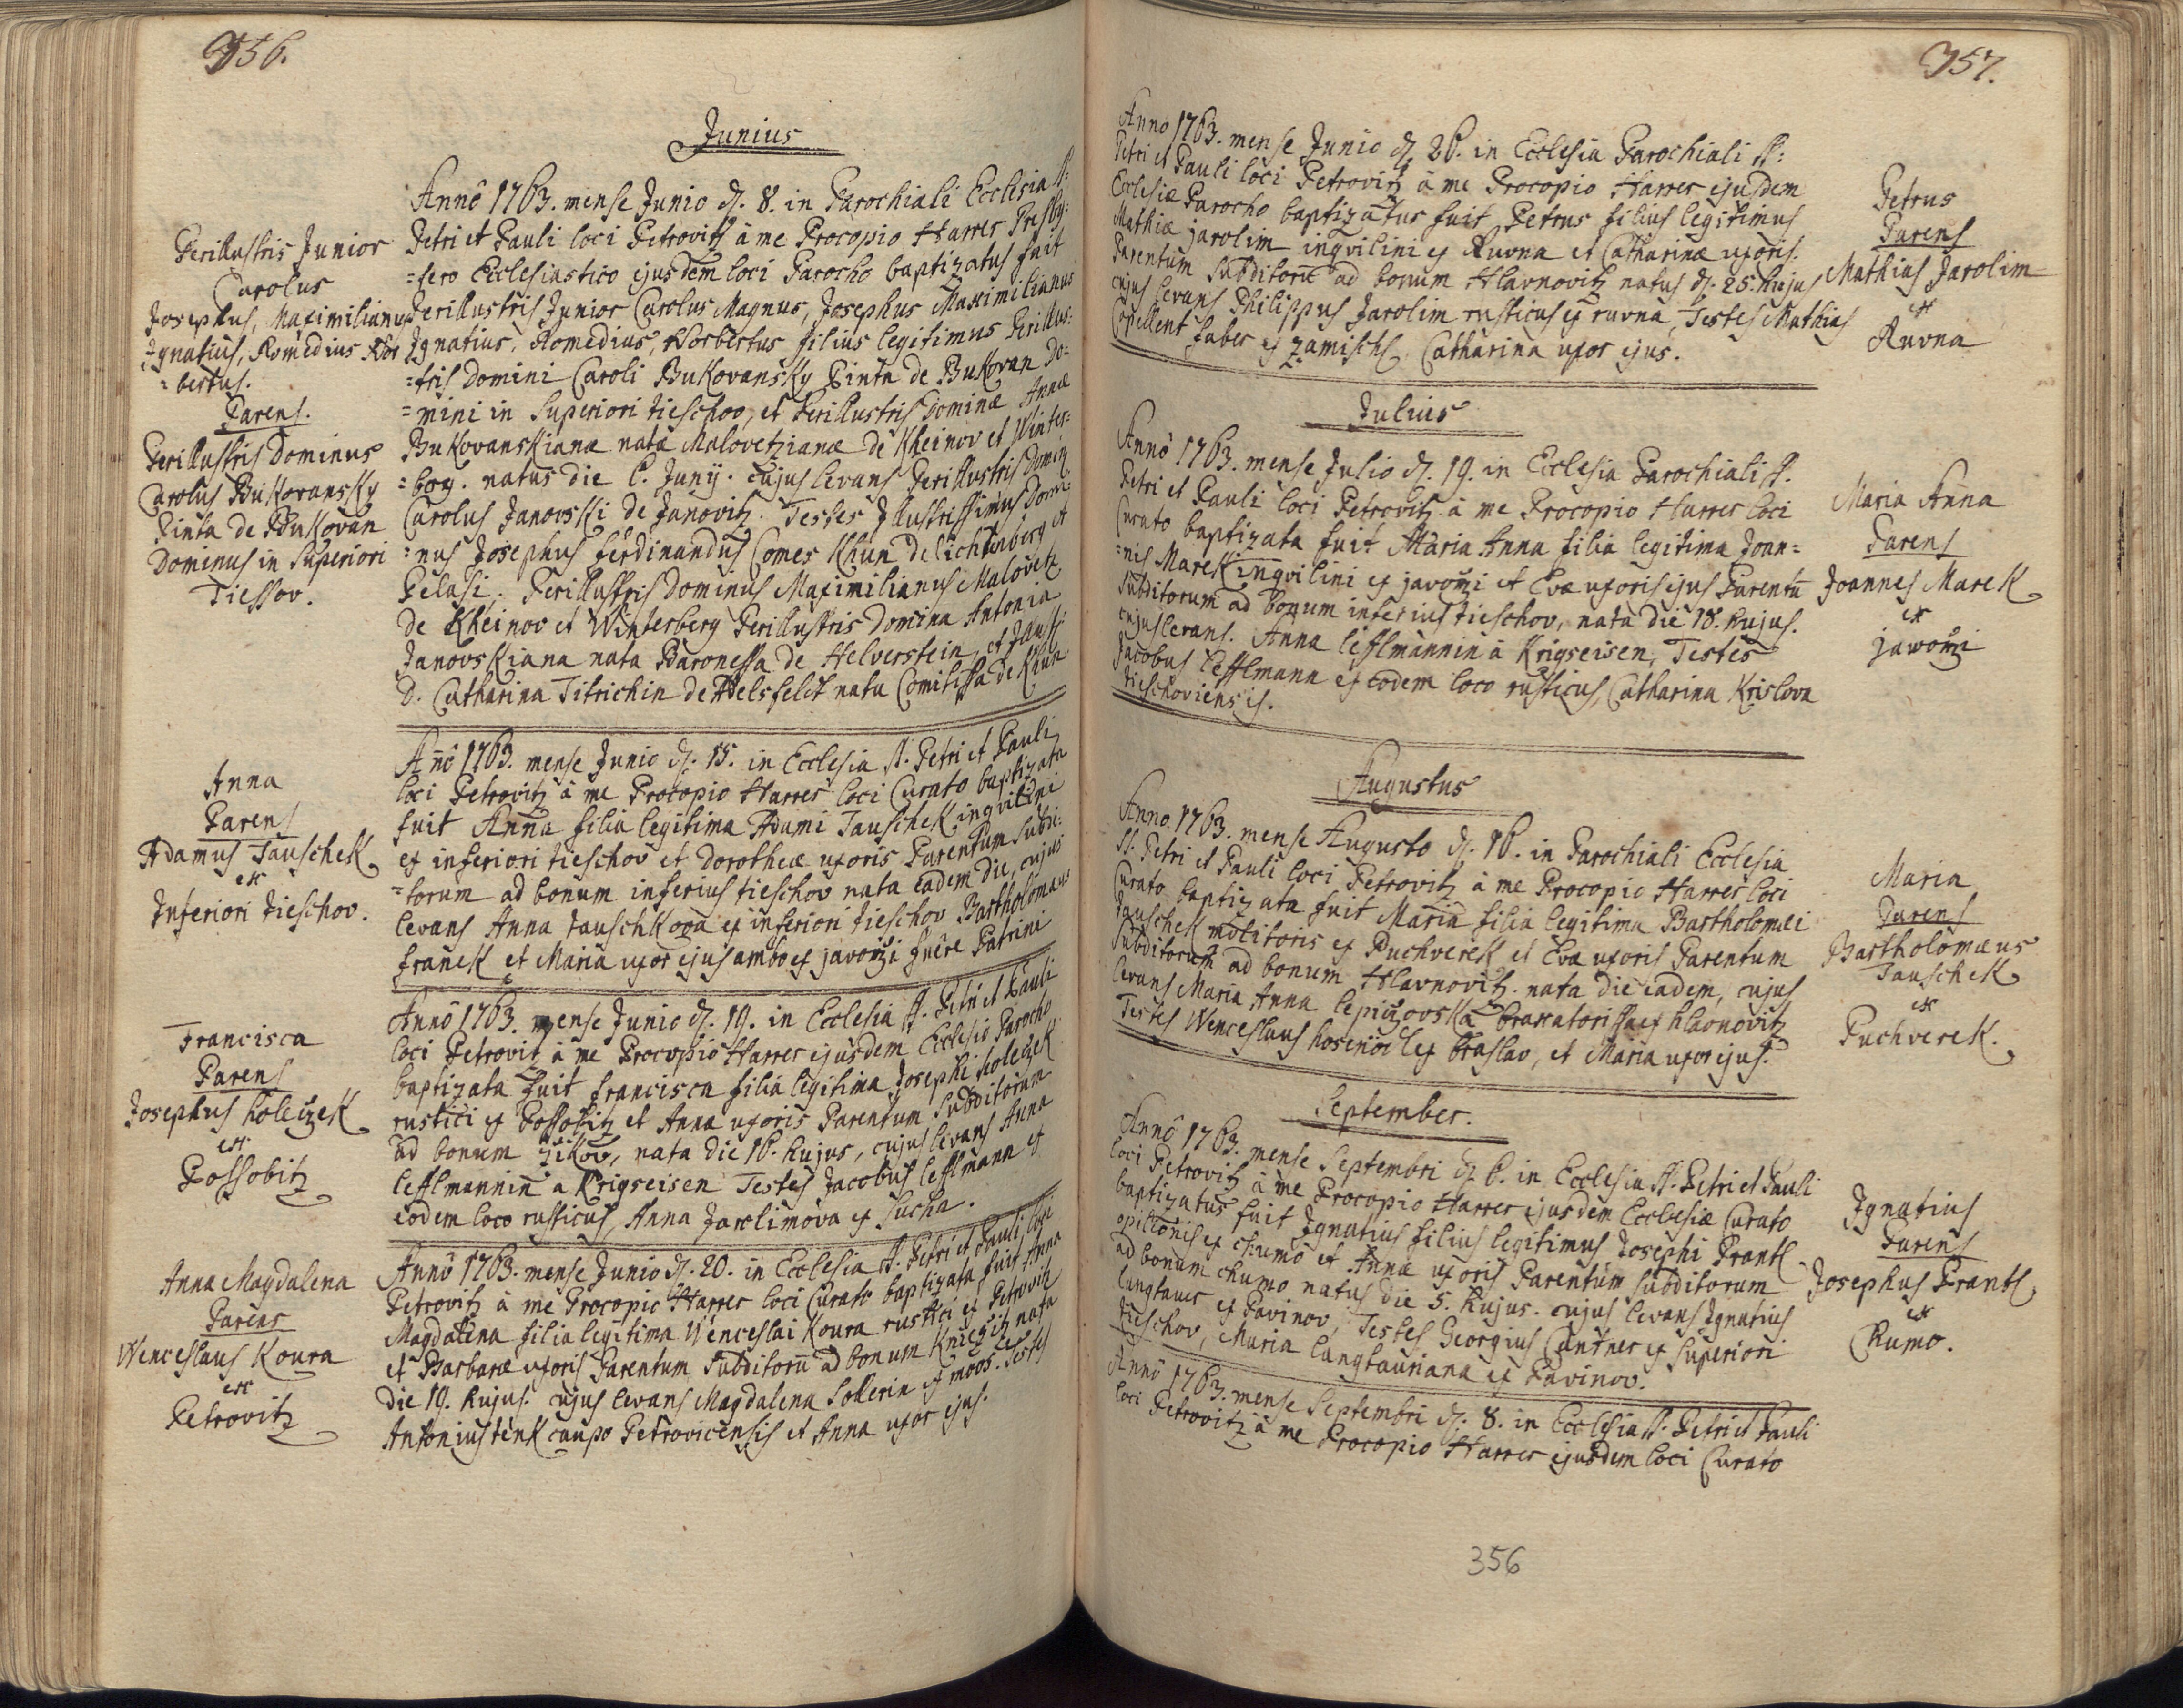 356.
Junius
Perillustris Junior
Carolus
Josephus, Maximilianus
Ignatius, Romedius Nor
=bertus.
Parens.
Perillustris Dominus
Carolus Bukovansky
Pinta de Bukovan
Dominus in Superiori
Tiessov.
Annô 1763. mense Junio d. 8. in Parochiali Ecclesia SS:
Petri et Pauli loci Petrovitz à me Procopio Harrer Presby:
=tero Ecclesiastico ejusdem loci Parocho baptizatus fuit
Perillustris Junior Carolus Magnus, Josephus Maximilianus
Ignatius, Romedius, Norbertus filius legitimus Perillus:
=tris Domini Caroli Bukovansky Pinta de Bukovan Do=
=mini in Superiori tieschov, et Perillustris Dominæ Annæ
Bukovanskianæ natæ Malovetzianæ de Kheinov et Winter=
=berg. natus die 6. Junij. cujus levans Perillustris Domin9
Carolus Janovski de Janovitz. Testes Illustrissimus Domi=
=nus Josephus ferdinandus Comes Khün de lichtenberg et
Pelasi. Perillustris Dominus Maximilianus Malovetz
de Kheinov et Winterberg Perillustris Domina Antonia
Janovskiana nata Baronessa de Helverstein, et Illust:
D. Catharina Titrichin de Helsfeldt nata Comitissa de Khün
Anna
Parens
Adamus Tauschek
ex
Inferiori Tieschov.
Annô 1763. mense Junio d. 15. in Ecclesia SS. Petri et Pauli
loci Petrovitz à me Procopio Harrer loci Curato baptizata
fuit Anna filia legitima Adami Tauschek inqvilini
ex inferiori tieschov et Dorotheæ uxoris Parentum Subdi:
=torum ad bonum inferius tieschov nata eadem die, cujus
levans Anna Tauschkova ex inferiori tieschov Bartholomæus
franek et Maria uxor ejus ambo ex javořzi fuêre Patrini
Francisca
Parens
Josephus holeczek
ex
Possobitz
Annô 1763. mense Junio d. 19. in Ecclesia SS. Petri et Pauli
loci Petrovitz à me Procopio Harrer ejusdem Ecclesiæ Parocho
baptizata fuit francisca filia legitima Josephi holeczek
rustici ex Possobitz et Annæ uxoris Parentum Subditorum
ad bonum žikov, nata die 16. hujus, cujus levans Anna
lefflmannin à Krigseisen Testes Jacobus lefflmann ex
eodem loco rusticus, Anna Jarolimova ex Sucha.
Anna Magdalena
Parens
Wenceslaus Koura
ex
Petrovitz
Annô 1763. mense Junio d. 20. in Ecclesia SS. Petri et Pauli loci
Petrovitz à me Procopio Harrer loci Curato baptizata fuit Anna
Magdalena filia legitima Wenceslai Koura rustici ex Petrovitz
et Barbaræ uxoris Parentum Subditorū ad bonum Kniezitz nata
die 19. hujus. cujus levans Magdalena Sollerin ex moos. Testes
Antonius tenk caupo Petrovicensis et Anna uxor ejus.
357.
Anno 1763. mense Junio d. 26. in Ecclesia Parochiali SS:
Petri et Pauli loci Petrovitz à me Procopio Harrer ejusdem
Ecclesiæ Parocho baptizatus fuit Petrus filius legitimus
Mathiæ jarolim inqvilini ex Ruvna et Catharinæ uxoris.
Parentum Subditorū ad bonum Hlavnovitz natus d. 25. hujus
cujus levans Philippus Jarolim rusticus ex ruvna, Testes Mathias
Opellent faber ex zamischl Catharina uxor ejus.
Petrus
Parens
Mathias Jarolim
ex
Ruvna
Julius
Annô 1763. mense Julio d. 19. in Ecclesia Parochiali SS.
Petri et Pauli loci Petrovitz à me Procopio Harrer loci
Curato baptizata fuit Maria Anna filia legitima Joan=
=nis Marek inqvilini ex javořzi et Evæ uxoris ejus Parentū
Subditorum ad bonum inferius tieschov, nata die 18. hujus.
cujus levans. Anna lefflmannin à Krigseisen, Testes
Jacobus lefflmann ex eodem loco rusticus, Catharina Krislova
tieschoviensis.
Maria Anna
Parens
Joannes Marek
ex
jawořzi
Augustus
Anno. 1763. mense Augusto d. 16. in Parochiali Ecclesia
SS. Petri et Pauli loci Petrovitz à me Procopio Harrer loci
Curato baptizata fuit Maria filia legitima Bartholomæi
Tauschek molitoris ex Puchverek et Evæ uxoris Parentum
Subditorum ad bonum Hlavnovitz. nata die eadem, cujus
levans Maria Anna lepiczovska braxatorissa ex hlavnovitz
Testes Wenceslaus hosenöcl ex braslav, et Maria uxor ejus.
Maria
Parens
Bartholomæus
Tauschek
ex
Puchverek.
September.
Annô 1763. mense Septembri d. 6. in Ecclesia SS. Petri et Pauli
loci Petrovitz à me Procopio Harrer ejusdem Ecclesiæ Curato
baptizatus fuit Ignatius filius legitimus Josephi Prantl
opilionis ex chumo et Annæ uxoris Parentum Subditorum
ad bonum chumo natus die 5. hujus. cujus levans Ignatius
langtauer ex Pavinov, Testes Georgius Cantner ex Superiori
tieschov, Maria langtauriana ex Pavinov.
Ignatius
Parens
Josephus Prantl
ex
Chumo.
Annô 1763. mense Septembri d. 8. in Ecclesia SS. Petri et Pauli
loci Petrovitz à me Procopio Harrer ejusdem loci Curato
356